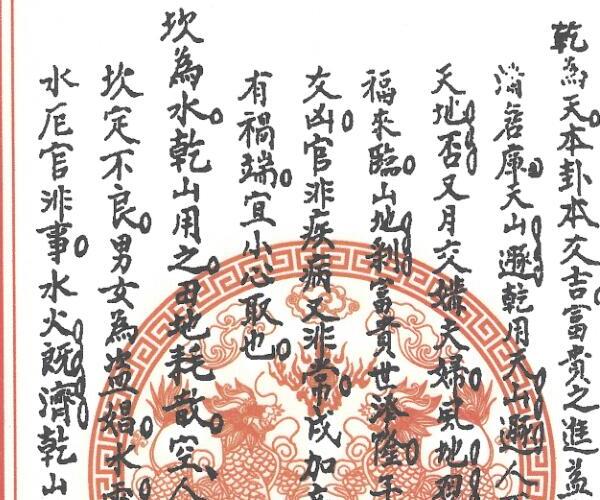 乾為天本卦本大吉富貴之進益
倉庫天山遯乾用天山遯人
天地否又月交媾夫婦 地理
福來臨山地剝富貴世 隆手
大凶官非疾病又非常戌加
有禍端宜小心取也
坎為水乾山用之田地耗散空人
坎定不良男女為盜娼水
水厄官非事水火既濟乾山